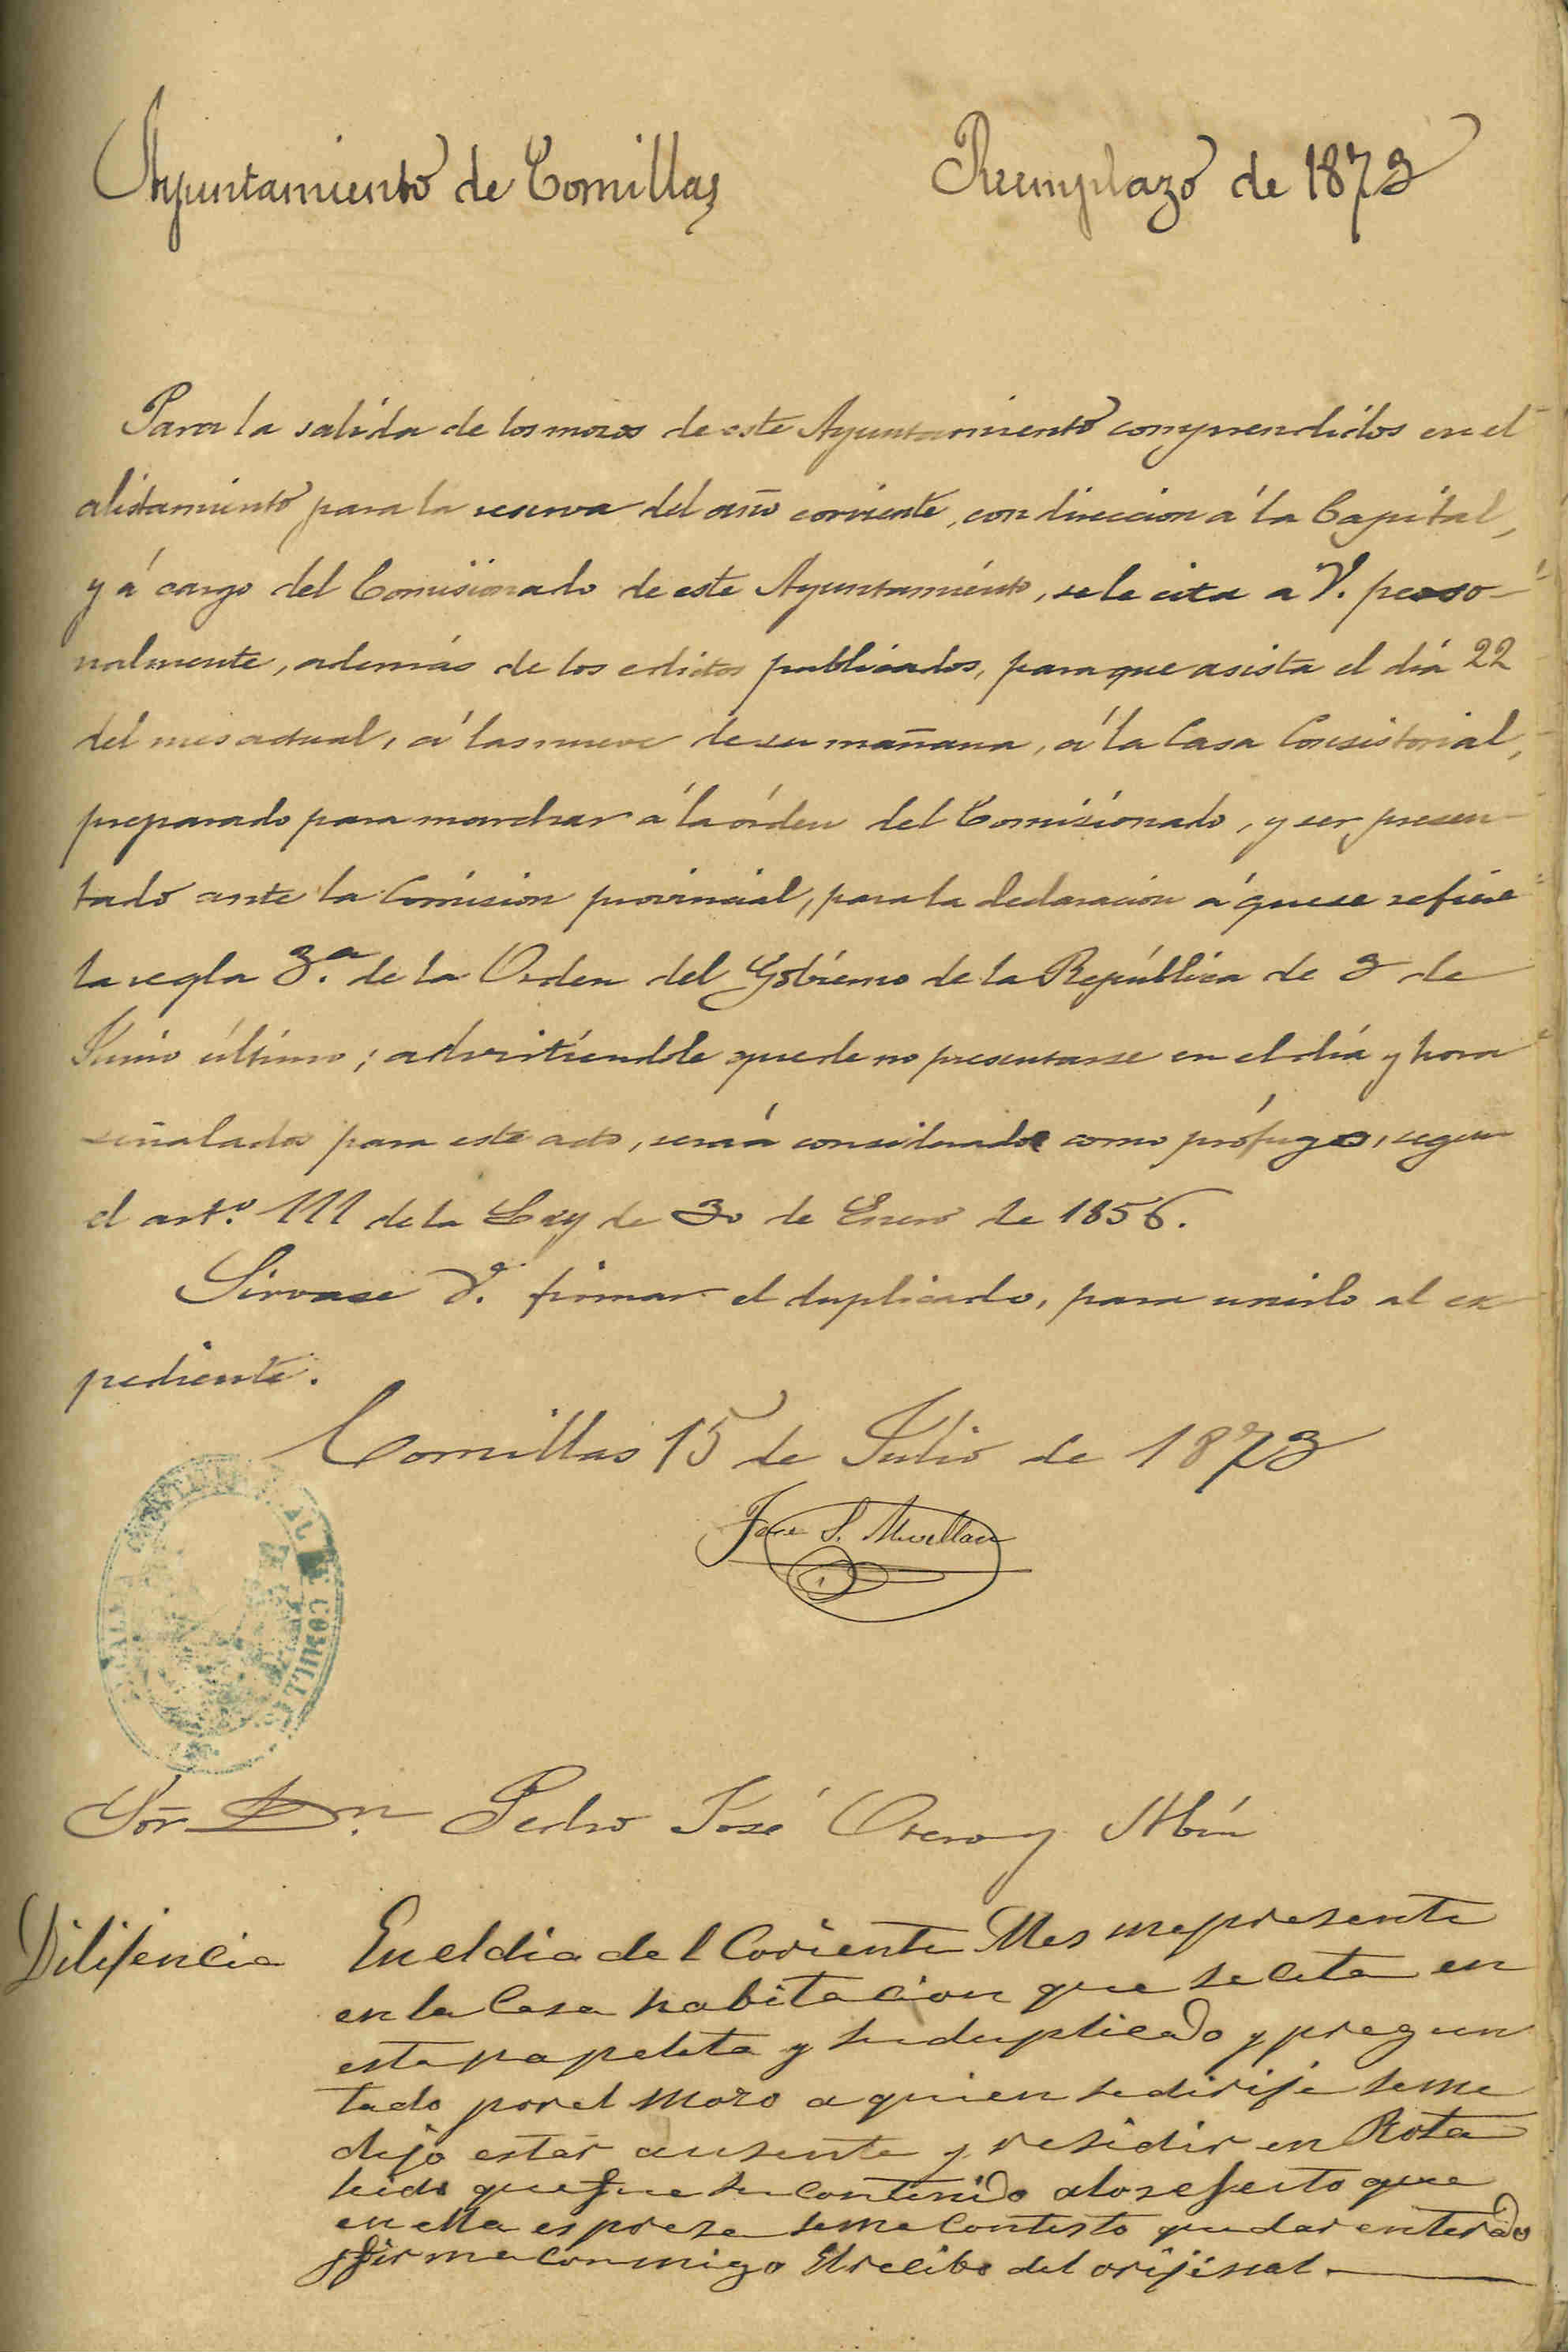 Ayuntamiento de Comillas
Reemplazo de 1873
Para la salida de los mozos de este Ayuntamiento comprendidos en el
alistamiento para la reserva del año corriente, con direccion á la Capital,
y á cargo del Comisionado de este Ayuntamiento, se le cita a V. perso-
nalmente, además de los edictos publicados, para que asista el dia 22
del mes actual, á las nueve de su mañana, á la Casa Consistorial,
preparado para marchar á la órden del Comisionado, y ser presen-
tado ante la Comision provincial, para la declaracion á que se refiere
la regla 3.ª de la Orden del Gobierno de la República de 3 de
Junio último; advirtiéndole que de no presentarse en el dia y hora
señalados para este acto, será considerado como prófugo, segun
el art.º 111 de la Ley de 30 de Enero de 1856.
Sirvase V. firmar el duplicado, para unirlo al ex
pediente.
Comillas 15 de Julio de 1873
Jose S. Movellan
COMILLAS
Sór Dn. Pedro José Otero y Abin
Dilijencia
En el dia del Coriente Mes me presente
en la Casa habitacion que se cita en
esta papeleta y su duplicado y pregun
tado por el mozo a quien se dirije se me
dijo estar ausente y residir en Rota
leido que fue su contenido a los efecto que
en ella espresa se me contesto quedar enterado
y firma conmigo El recibo del orijinal.